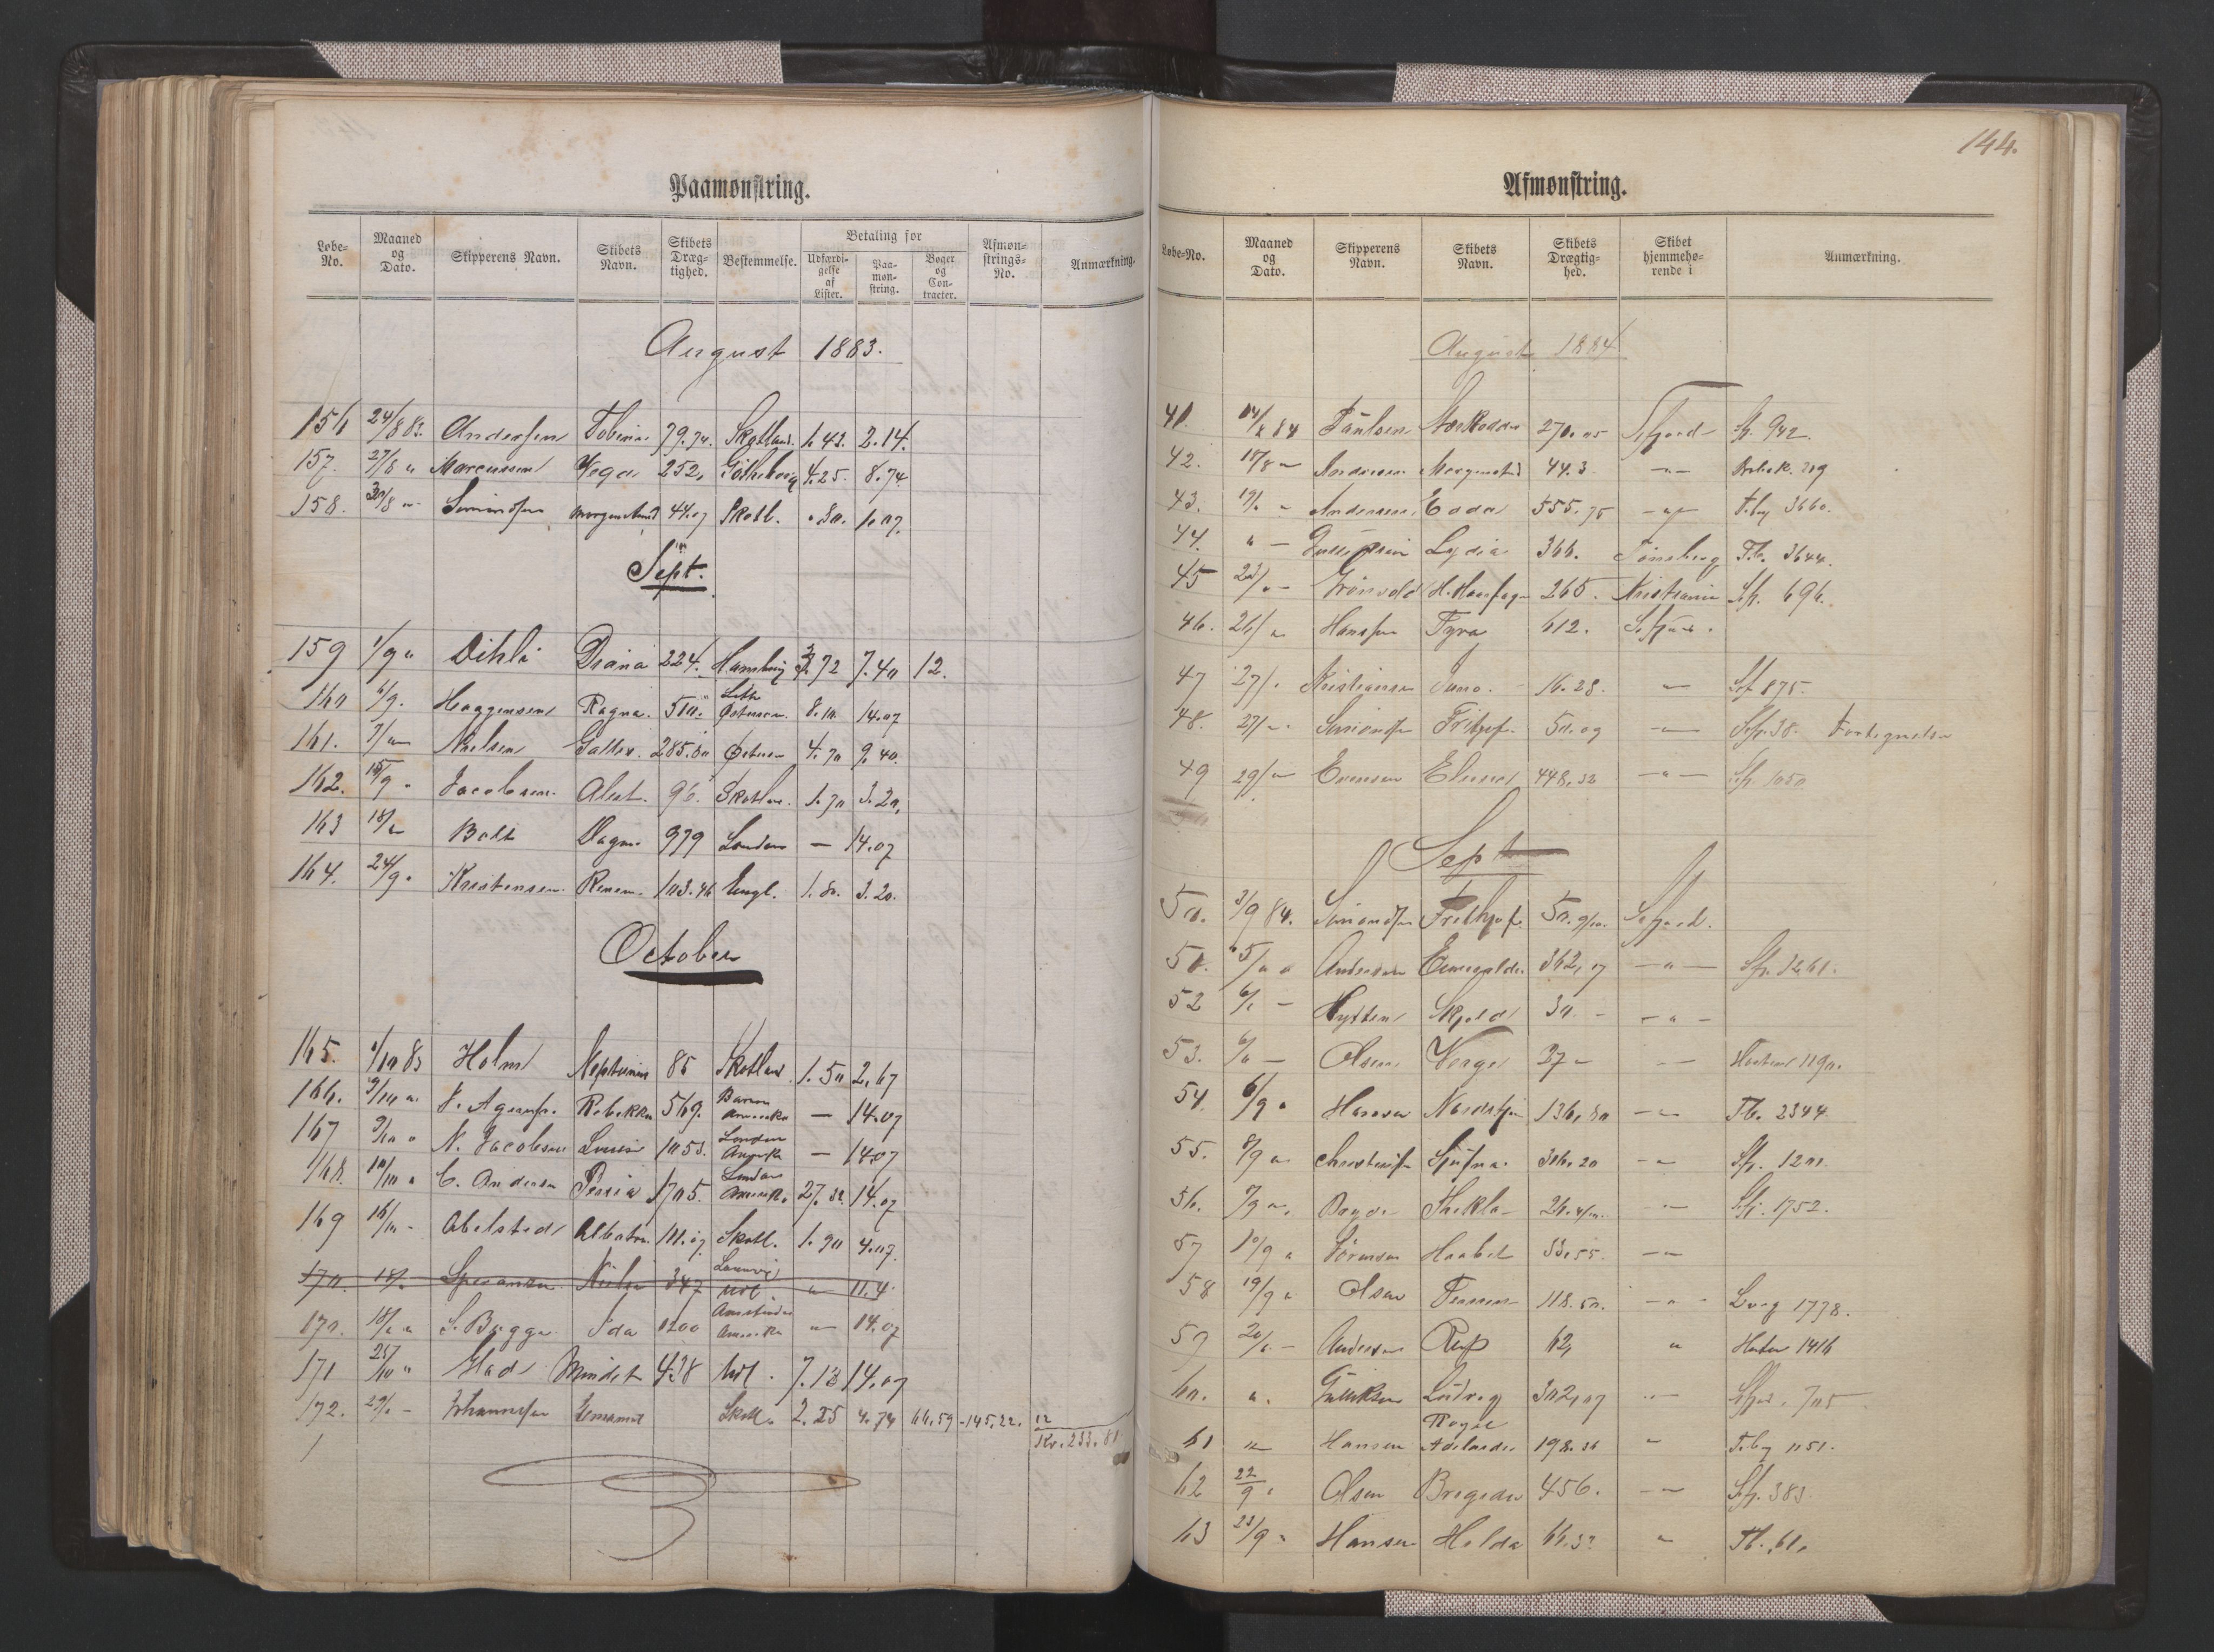 Paamønstring.
Løbe-No. Maaned og Dato. Skipperens Navn. Skibets Navn. Skibets Dræg-tighed. Bestemmelse. Betaling for Udfærdi-gelse af Lister. Paa-møn-string. Bøger og Con-tracter. Afmøn-strings-No. Anmærkning.
August 1883.
156 24/8 83. Andersen 79.74. Skotland. 1.43. 2.14.
157. 27/8 " Marcussen Vega 252, Gøtheborg 4.25. 8.74
158. 30/8 " Simonsen Morgenstund 44.07 Skotl. .80. 1.07.
Sept.
159 1/9 " Dihle Diana 224. Hamburg 72 7.40 12.
160 6/9. Haagensen Ragna. 510. Leith Østersøen. 8.10. 14.07
161. 7/" Nielsen 285.80 4.70 9.40.
162. 15/9 " Jacobsen. 96. Skotland. 1.70 3.20,
163 18/" Bolt Dagm. 979 London — 14.07
164. 24/9. Kristensen. 103.46 Engl. 1.80. 3.20.
October
165. 1/10 83 Holm Neptunus 85 Skotland. 1.50 2,67
166. 9/10 ". Rebekka 569. Amerika — 14.07
167 9/10 " N. Jacobsen 1053. London Amerika — 14.07
168. 10/10 " C. Andersen Persia 1705. London Amerika 27.32 14.07
169 16/10 - Abelsted Albatros. 111.07 Skotl. 1.90 4.07.
170. 18/" 347 " 11.4.
170. 18/" " S. Bugge Ida 1200 Amsterdam Amerika " 14.07
171 25/10 " Mindet 438 7.13 14.07
172. 29/" - Johannessen Skotl. 2.25 4.74 66.59 - 145.22. 12
Kr. 233.81
144.
Afmønstring.
Løbe-No. Maaned og Dato. Skipperens Navn. Skibets Navn. Skibets Drægtig-hed. Skibet hjemmehø-rende i Anmærkning.
August 1884
41. 14/8 84 Paulsen 270.05 Sfjord Sf. 942.
42. 18/8 " Andersen Morgenstund 44.3 —"— 319
43. 19/" " Andersen Edda 555.75 —"— T.bg 3660.
44. " — Lydia 366. Tønsberg T.b. 3644.
45 23/" - Grønvold H. Haarfager 265. Kristiania Sf. 696.
46. 26/ " Hansen Tyra 612. Sfjord.
47 27/". Kristiansen Juno. 16.28. " Sf 875.
48. 27/". Simonsen Frithjof. 50.09 — Sfj. 38. Fortegnelse
49 29/" Evensen 448,32 —"— Sfj. 1050
Sept
50. 3/9 84. Simonsen Frithjof. 50.9/10. Sfjord.
51. 5/" " Andersen Esmeralda. 362,07 —"— Sfj. 3261.
52 6/" — Hytten Skjold 30. - —"—
53. 6/" — Olsen 27 - — Horten 1190.
54. 6/9 " Hansen 136,80 —"— T.b. 2344
55. 8/9 " Christensen 306.20 —" Sfj. 1200.
56. 9/9 ". Bryde Thekla 26.4/10. —"— Sfj. 1752.
57 10/9 " Sørensen Haabet 33,55. —"
58 19/9 " Olsen 118.50. —"— Lvig 1778.
59 20/" - Andersen Rap 62, " Horten 1416
60. ". Gulliksen Ludvig 302,07 "— Sfjord. 705
61 " Hansen Adelaide 198.36 " T.bg 1151.
62 22/9 " Olsen 456. —" Sfj. 383
63 23/9 " Hansen Hulda 66.37 " T.b. 61.